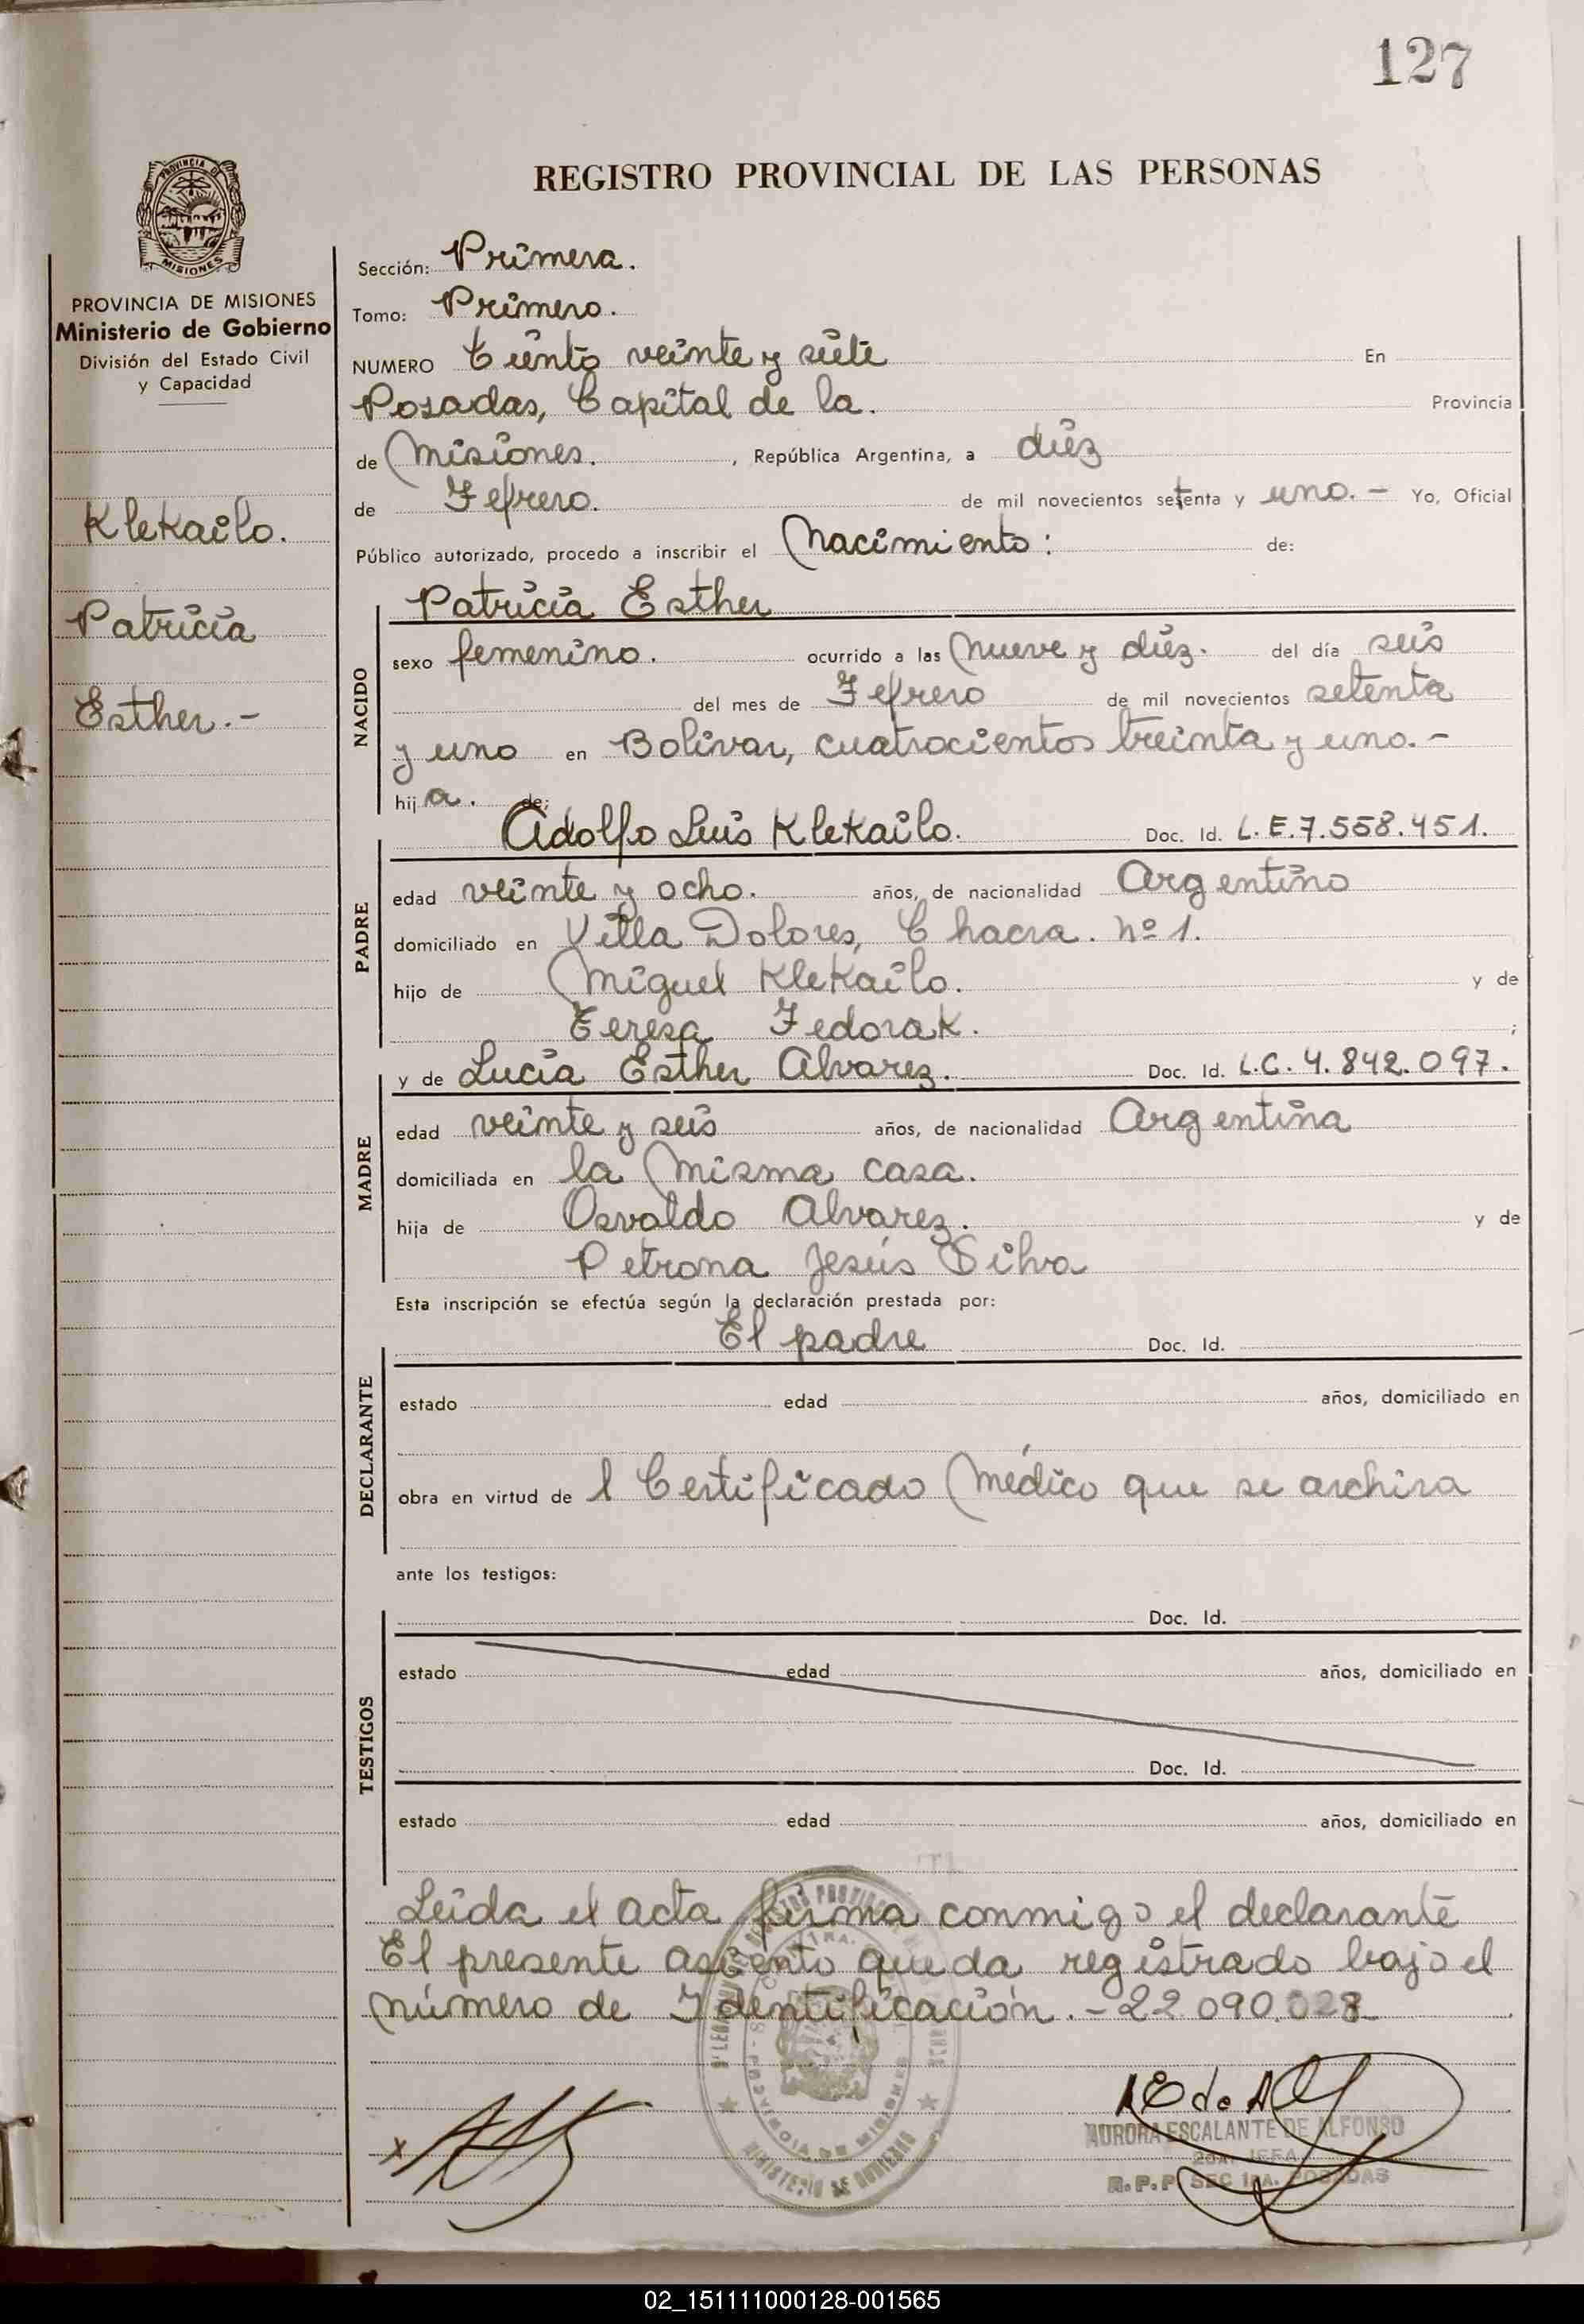 127
REGISTRO PROVINCIAL DE LAS PERSONAS
PROVINCIA DE MISIONES
Ministerio de Gobierno
División del Estado Civil
y Capacidad
Klekailo.
Patricia
Esther.-
Sección: Primera.
Tomo: Primero.
NUMERO Ciento veinte y siete En
Posadas, Capital de la. Provincia
de Misiones. , República Argentina, a diez
de Febrero. de mil novecientos setenta y uno. - Yo, Oficial
Público autorizado, procedo a inscribir el Nacimiento: de:
NACIDO
Patricia Esther
sexo femenino. ocurrido a las Nueve y diez. del día seis
del mes de Febrero de mil novecientos setenta
y uno en Bolivar, cuatrocientos treinta y uno.-
hija. de:
PADRE
Adolfo Luis Klekailo. Doc. Id. L.E.7.558.451.
edad veinte y ocho. años, de nacionalidad Argentino
domiciliado en Villa Dolores, Chacra. Nº 1.
hijo de Miguel Klekailo. y de
Teresa Fedorak. ;
MADRE
y de Lucia Esther Alvarez. Doc. Id. L.C.4.842.097.
edad veinte y seis años, de nacionalidad Argentina
domiciliada en la Misma casa.
hija de Osvaldo Alvarez. y de
Petrona Jesús Silva
Esta inscripción se efectúa según la declaración prestada por:
DECLARANTE
El padre Doc. Id.
estado edad años, domiciliado en
obra en virtud de l Certificado Médico que se archiva
ante los testigos:
TESTIGOS
Doc. Id.
estado edad años, domiciliado en
Doc. Id.
estado edad años, domiciliado en
Leida el acta firma conmigo el declarante
El presente asiento queda registrado bajo el
número de Identificación.-22.090.028
AURORA ESCALANTE DE ALFONSO
R.P.P. SEC 1RA. POSADAS
02_151111000128-001565